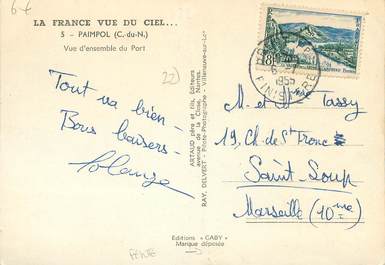 6+
LA FRANCE VUE DU CIEL...
5 - PAIMPOL (C.-du-N.)
Vue d'ensemble du Port
22)
Tout va bien -
Bons baisers -
Solange
ARTAUD père et fils, Editeurs
avenue de la Close, Nantes.
RAY. DELVERT - Pilote-Photographe Villeneuve-sur-Lot
1955
FINISTERE
M- et M- Tassy
19, Ch. de St Fronc
Saint-Loup
Marseille (10me)
Editions "GABY"
Marque déposée